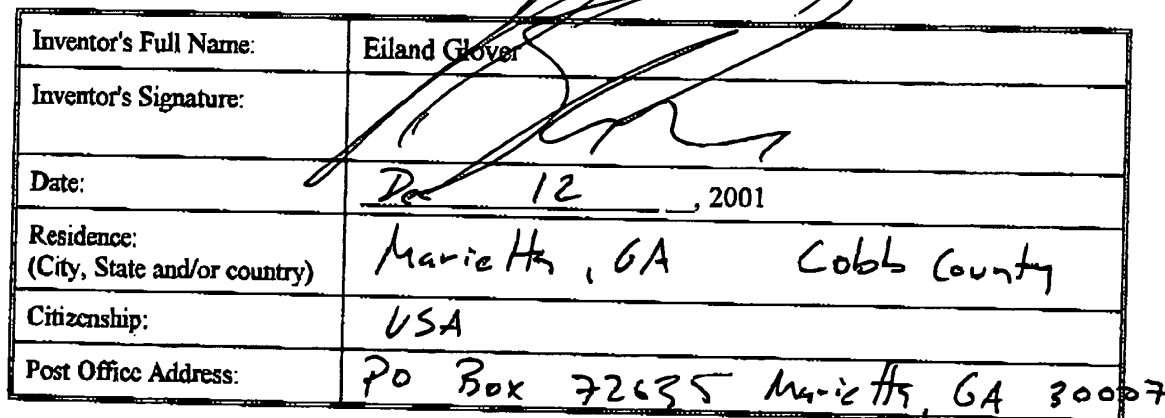 Inventor's Full Name: Eiland Glover
Inventor's Signature:
Date: Dec 12, 2001
Residence: (City, State and/or country) Marietta, GA Cobb County
Citizenship: USA
Post Office Address: PO Box 72635 Marietta, GA 30007